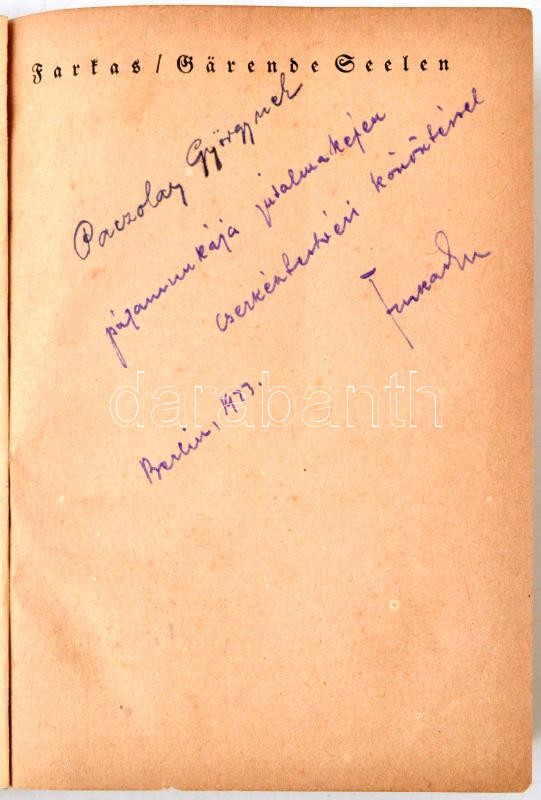 Farkas / Gärende Seelen
Paczolay Györgynek
pályamunkája jutalmaképen
cserkésztestvéri köszöntéssel
Berlin, 1933.
darabanth